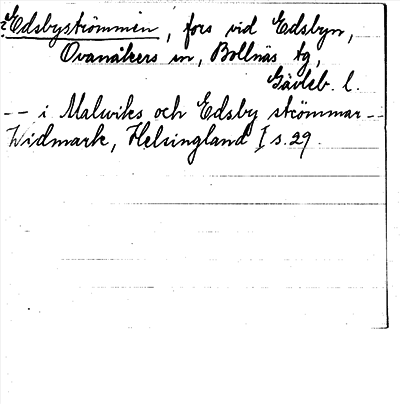 Edsbyströmmen, fors vid Edsbyn,
Ovanåkers sn, Bollnäs tg,
Gävleb. l.
-- i Malwiks och Edsby strömmar --
Widmark, Helsingland I s. 29.